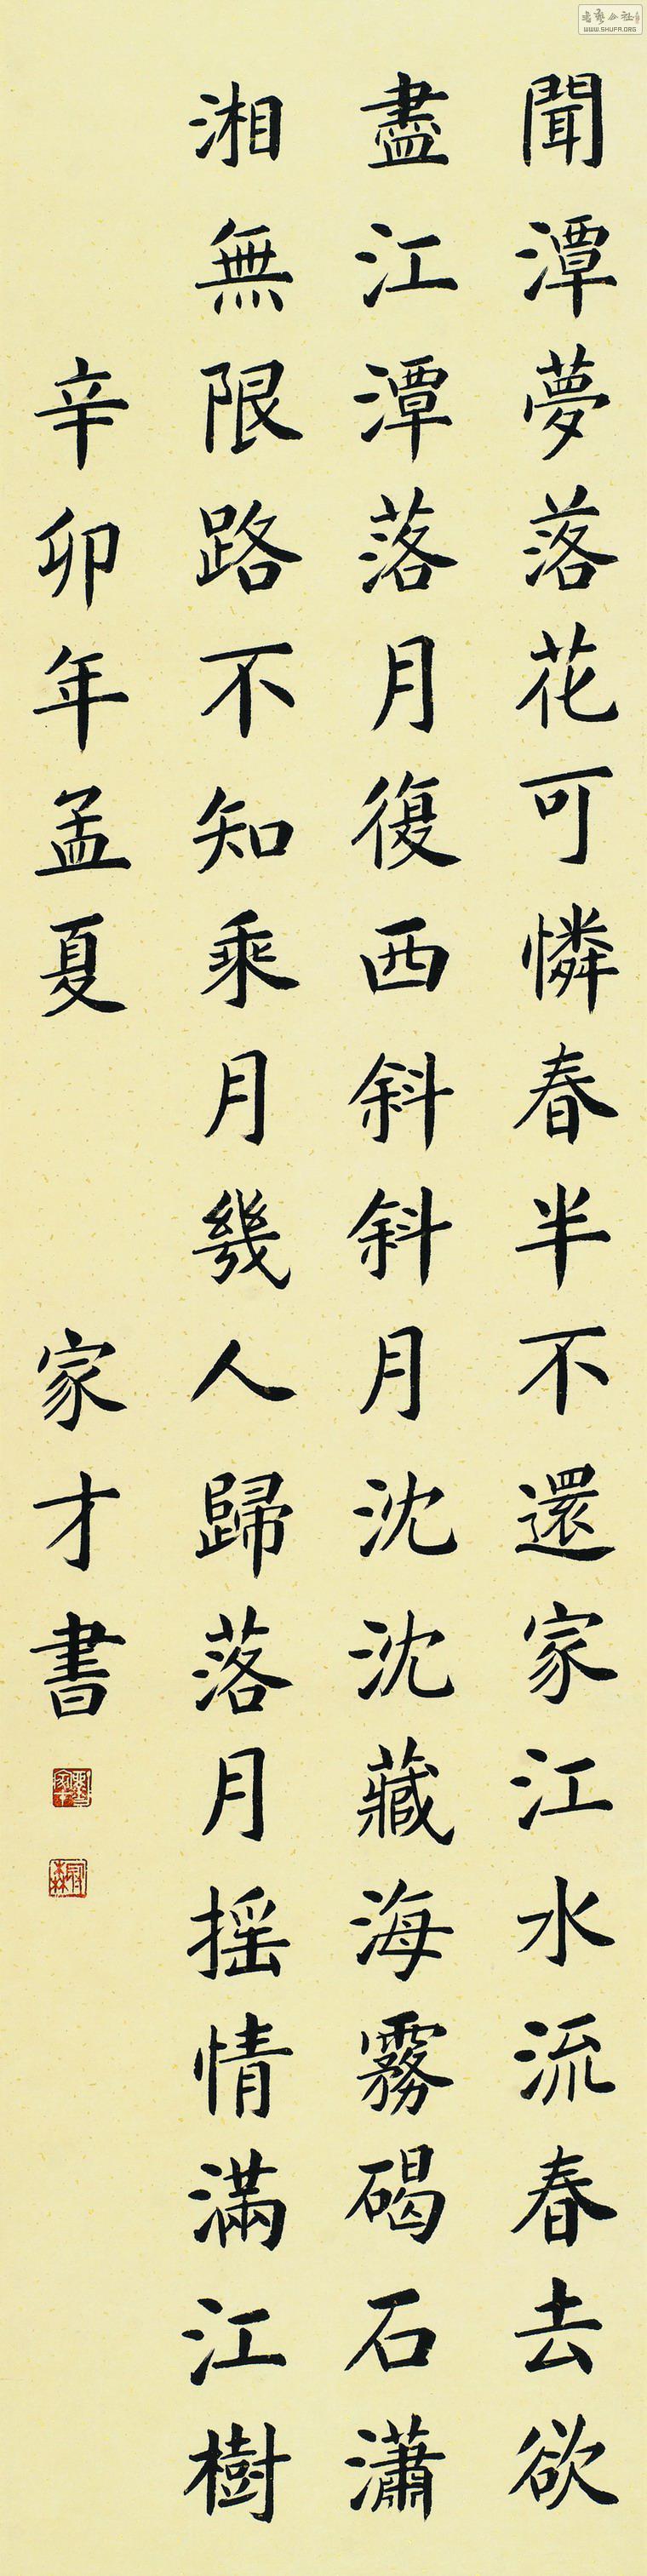 聞潭夢落花可憐春半不還家江水流春去欲
盡江潭落月復西斜斜月沈沈藏海霧碣石瀟
湘無限路不知乘月幾人歸落月搖情滿江樹
辛卯年孟夏 家才書
WWW.SHUFA.ORG